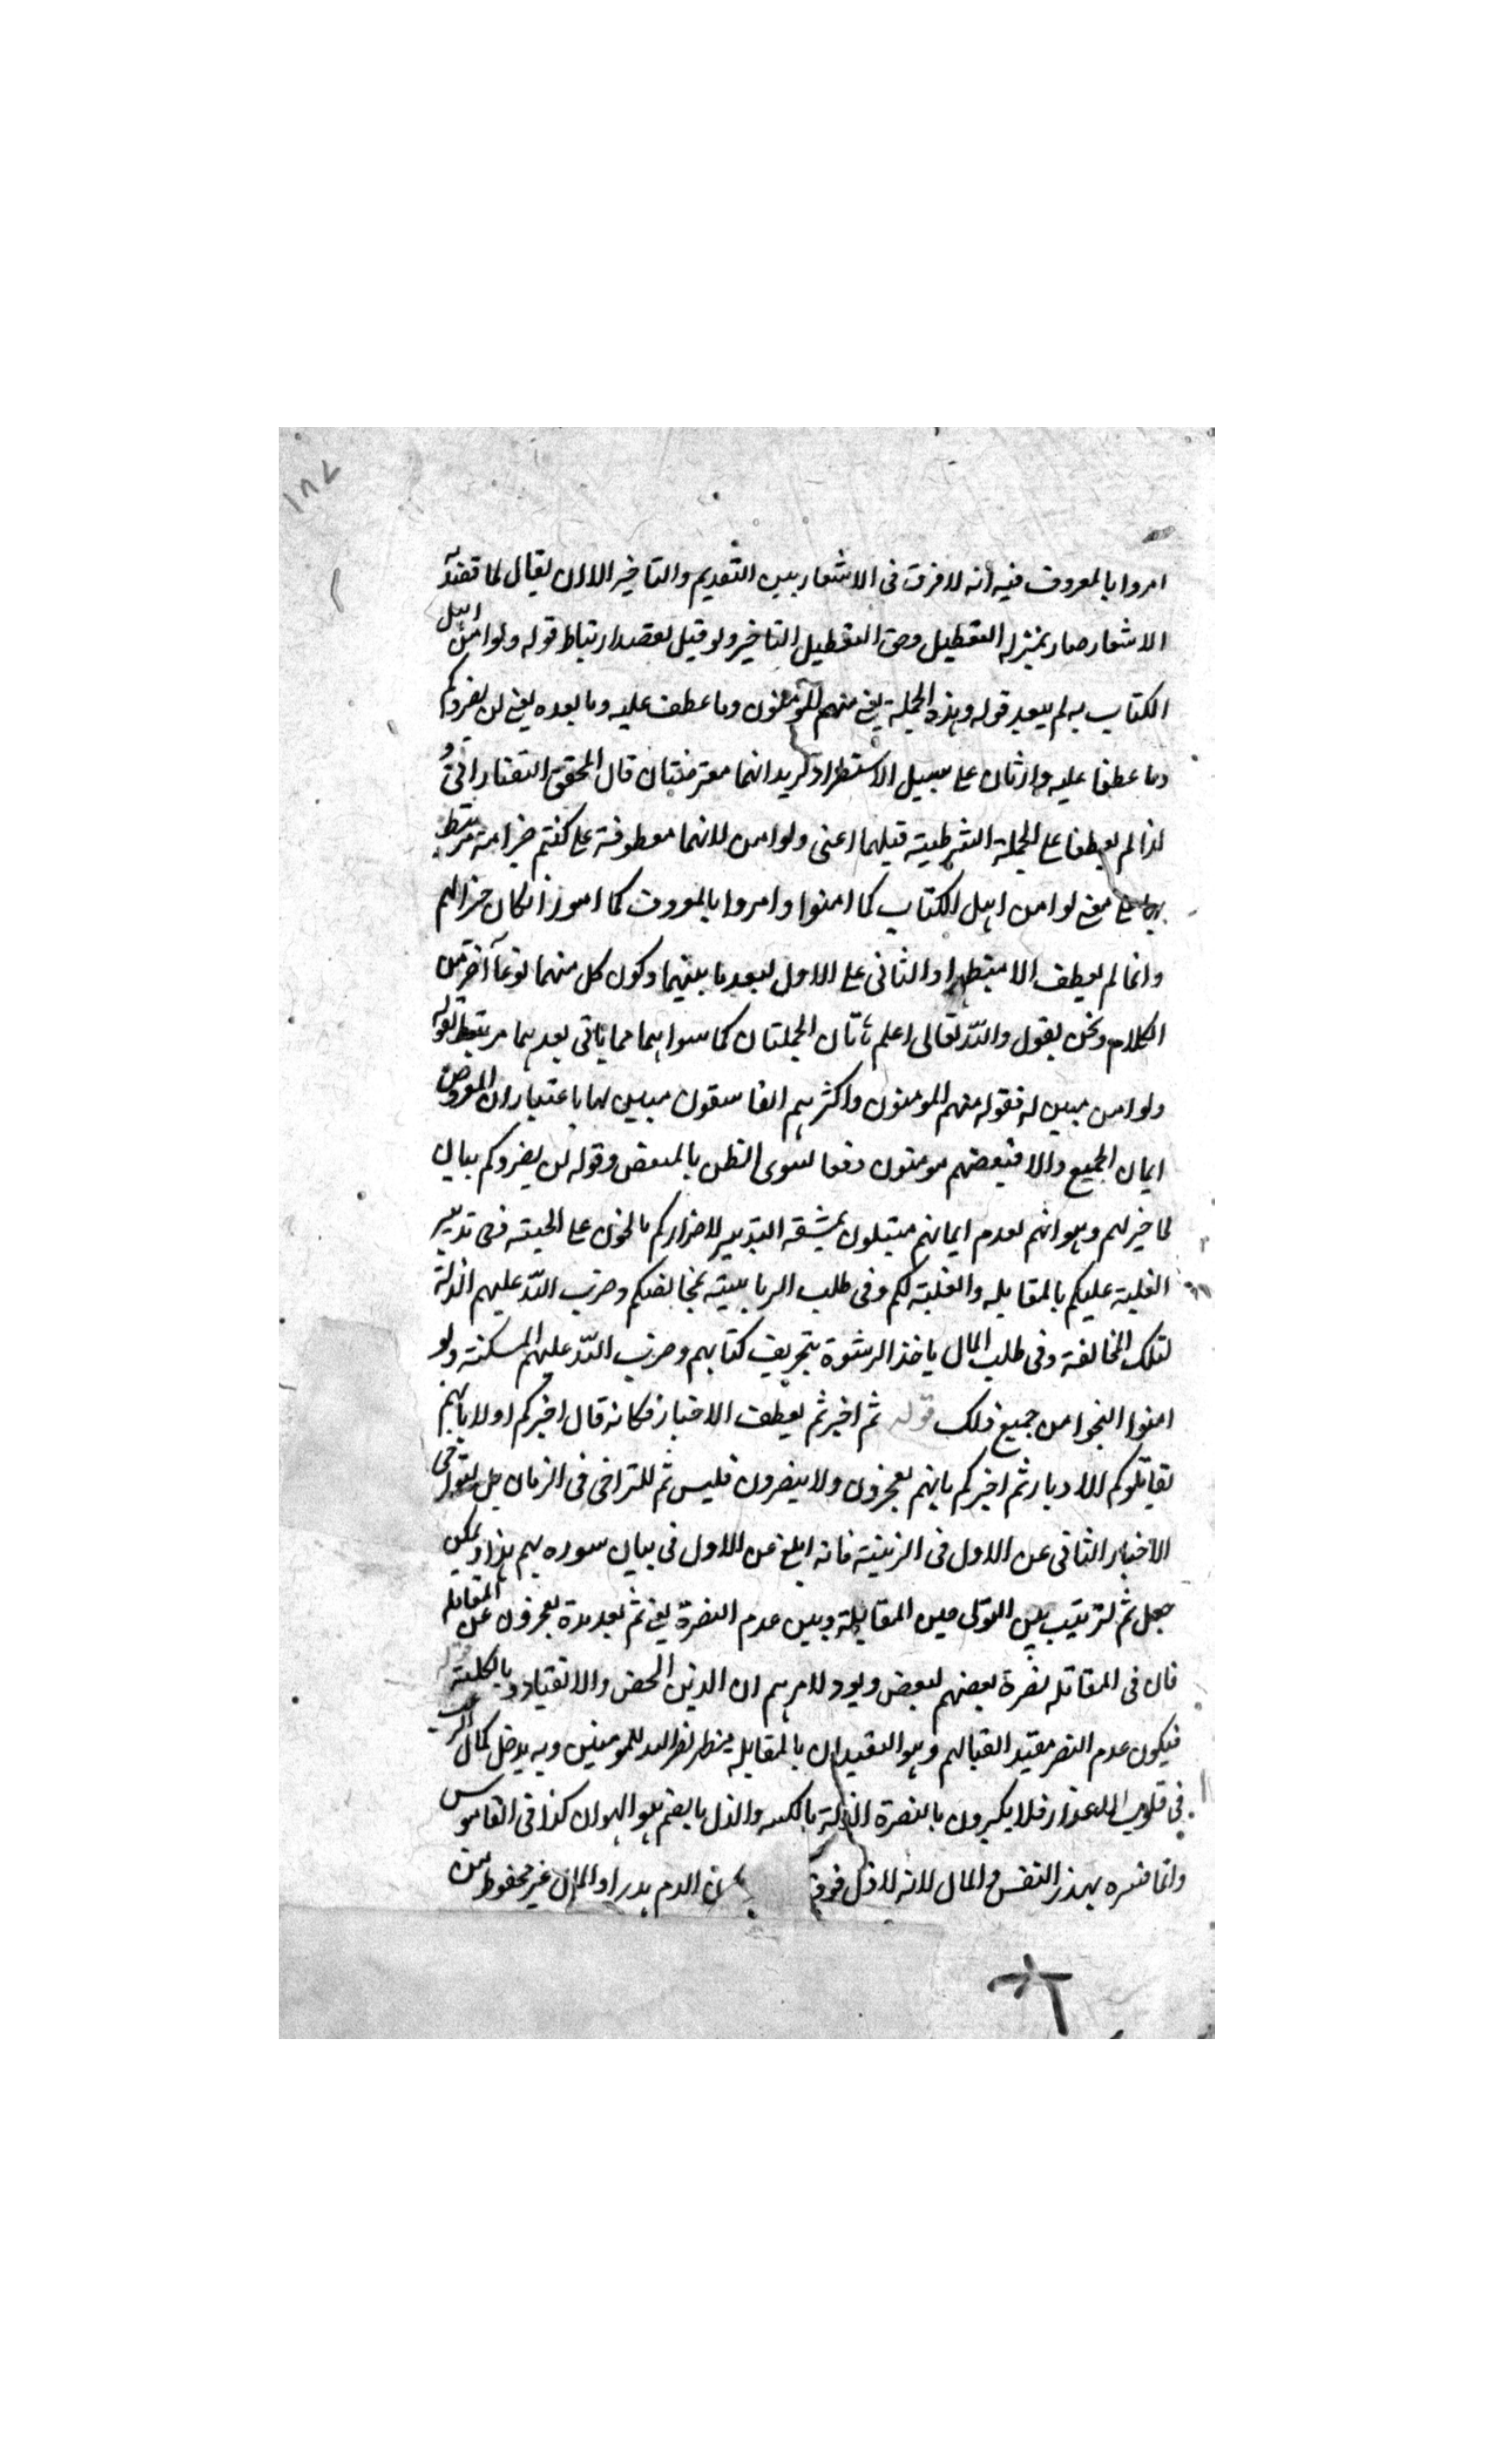 ١٨٧
امروا بالمعروف فيه انه لا فرق فى الاشعار بين التقديم والتاخير الا ان يقال لما قصد به
الاشعار صار بمنزلة التعطيل وحق التعطيل التاخير ولو قيل لقصد ارتباط قوله ولو امن اهل
الكتاب به لم يبعد قوله وهذه الجملة يعنى منهم المؤمنون وما عطف عليه وما بعده يعنى لن يضروكم
وما عطف عليه وارثان على سبيل الاستطراد يريد انهما معترضتان قال المحقق التفتازانى و
لذا لم يعطفا على الجملة الشرطية قبلهما اعنى ولو امن لانها معطوفة على كنتم خير امة مرتبط
بها على معنى لو امن اهل الكتاب كما امنوا وامروا بالمعروف كما امروا لكان خيرا لهم
وانما لم يعطف الاستطراد الثانى على الاول لبعد ما بينهما وكون كل منهما نوعا آخر من
الكلام ونحن نقول والله تعالى اعلم تانك الجملتان كما سواهما مما ياتى بعدهما مرتبط بقوله
ولو امن مبين له فقوله منهم المومنون واكثرهم الفاسقون مبين لها باعتبار ان المفروض
ايمان الجميع والا فبعضهم مومنون دفعا لسوى الظن بالبعض وقوله لن يضروكم بيان
لما خير لهم وهو انهم لعدم ايمانهم مبتلون بمشقة التدبير لاضراركم بالحزن على الحيته ففى تدبير
الغلبة عليكم بالمقابله والغلبة لكم وفى طلب الرياسة بمخالفتكم وضرب الله عليهم الذلة
لتلك المخالفة وفى طلب المال ياخذ الرشوة بتحريف كتابهم وضرب الله عليهم المسكنة ولو
امنوا النجوا من جميع ذلك قوله ثم اخبر ثم يعطف الاخبار فكانه قال اخبركم اولا بانهم
يقاتلوكم الادبار ثم اخبركم بانهم يعجزون ولا ينصرون فليس ثم للتراخى فى الزمان بل لتراخى
الاخبار الثانى عن الاول فى الرتبة فانه ابلغ من الاول فى بيان سوره بهم هذا ويمكن
جعل ثم لترتيب بين التولى حين المقابلة وبين عدم النصرة يعنى ثم بعد مدة يعجزون عن المقابله
فان فى المقاتلة نصرة بعضهم لبعض ويود لامرهم ان الدين المحض والانقياد بالكلية
فيكون عدم النصر مقيد القبالهم وهو التقييد ان بالمقابله ينظر نصر الله للمومنين وبه يدخل كمال الرعب
فى قلوب الاعذار فلا يكبرون بالنصرة الذلة بالكسر والذل بالضم هو الهوان كذا فى القاموس
وانما فسره بهذر النفس والمال لانه لا ذل فوق ان الدم هدر او المال غير محفوظ من